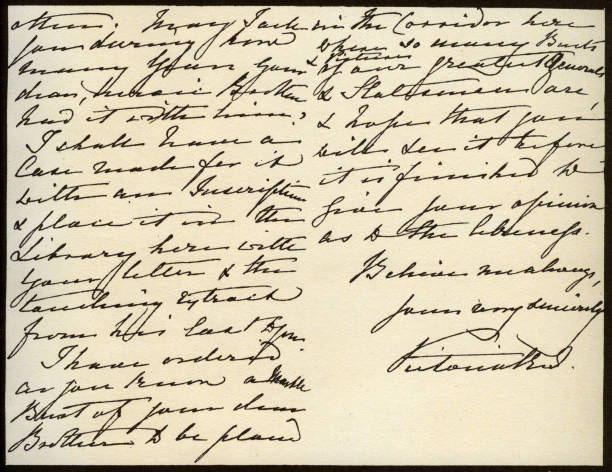 other. May I ask
you during how
many years your
dear, heroic Brother
had it with him?
I shall have a
Case made for it
with an Inscription
& place it in the
Library here with
your letter & the
touching extract
from his last to you
I have ordered
as you know a Marble
Bust of your dear
Brother to be placed
in the Corridor here
where so many Busts
& Pictures
of our greatest Generals
& Statesmen are,
& hope that you
will see it before
it is finished to
give your opinion
as to the likeness.
Believe me always,
yours very sincerely
Victoria R.I.